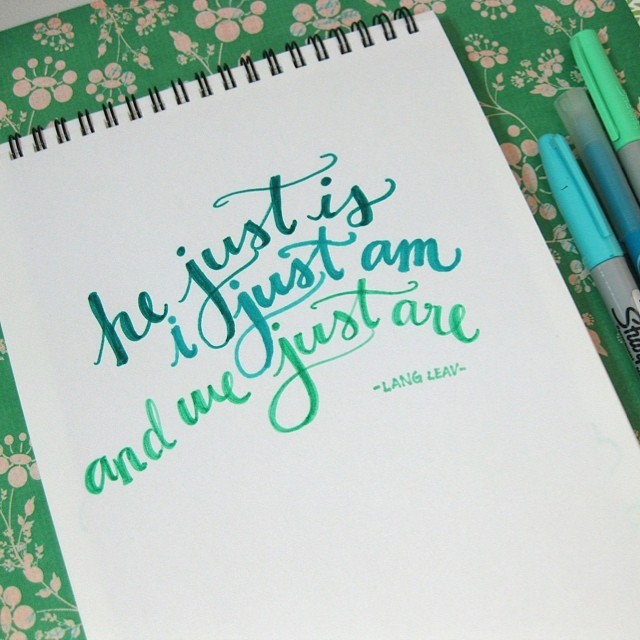 he just is
i just am
and we just are
-LANG LEAV-